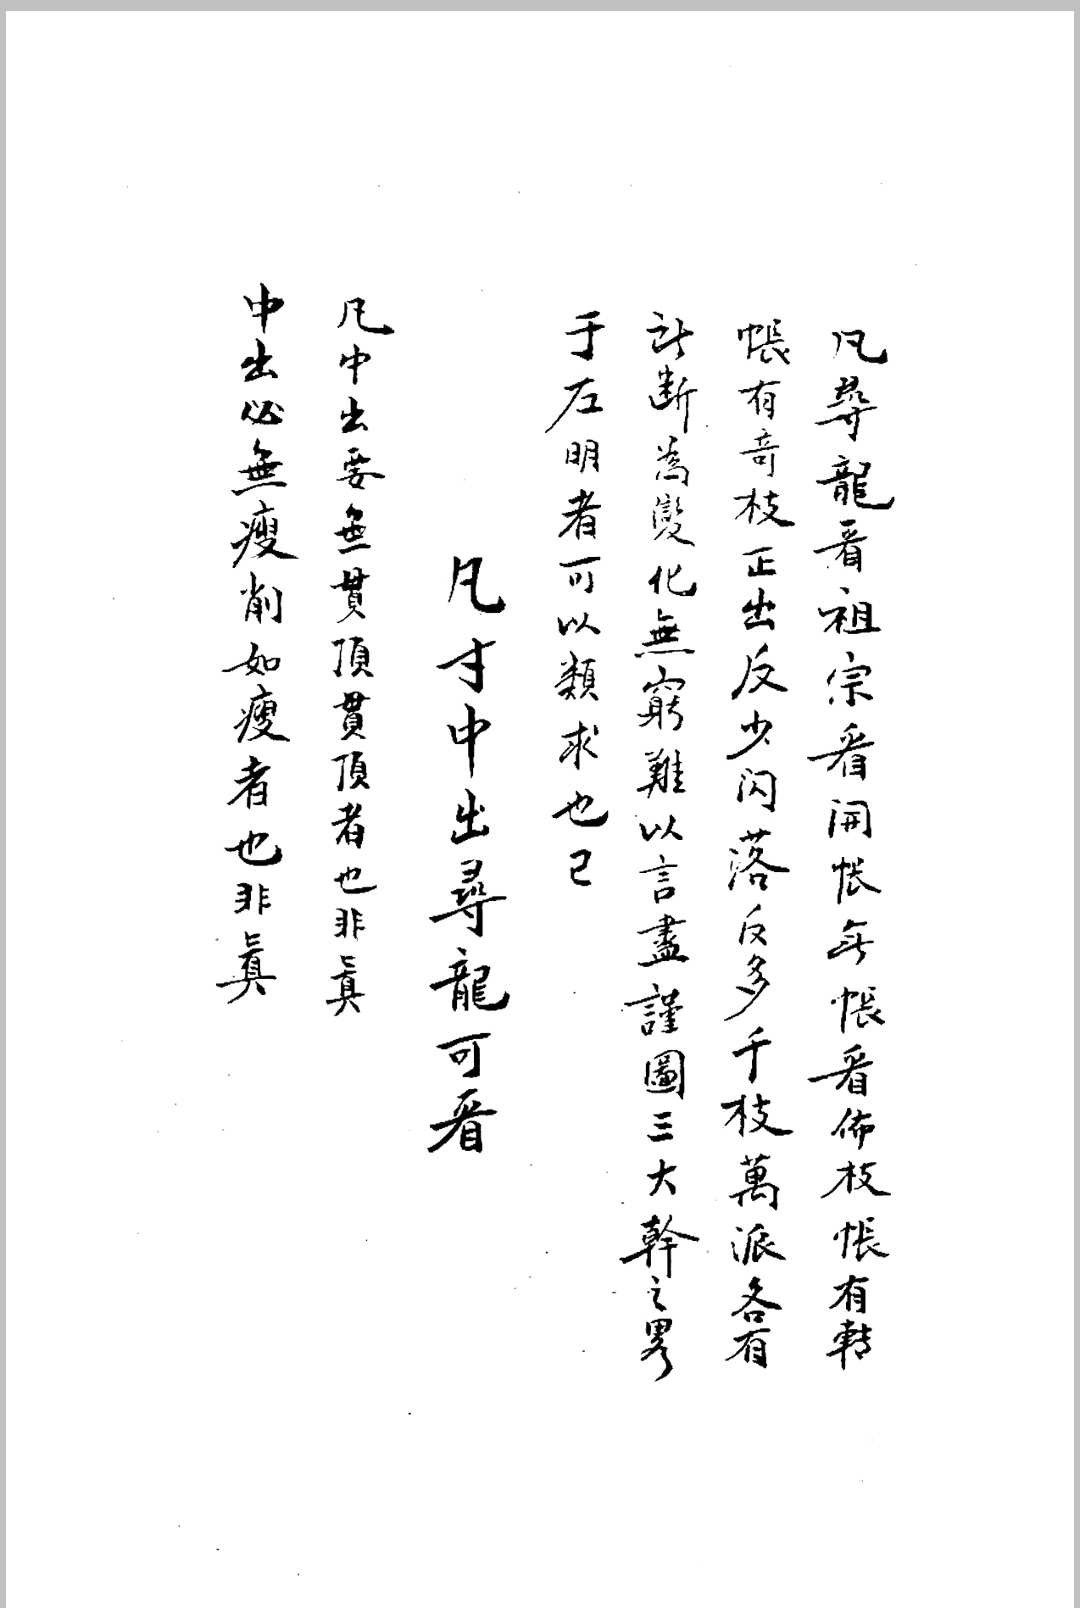 凡尋龍看祖宗看開帳每帳看佈枝帳有轉
帳有奇枝正出反少閃落反多千枝萬派各有
訣斷為變化無窮難以言盡謹圖三大幹之畧
于左明者可以類求也已
凡才中出尋龍可看
凡中出要無貫頂貫頂者也非真
中出必無瘦削如瘦者也非真